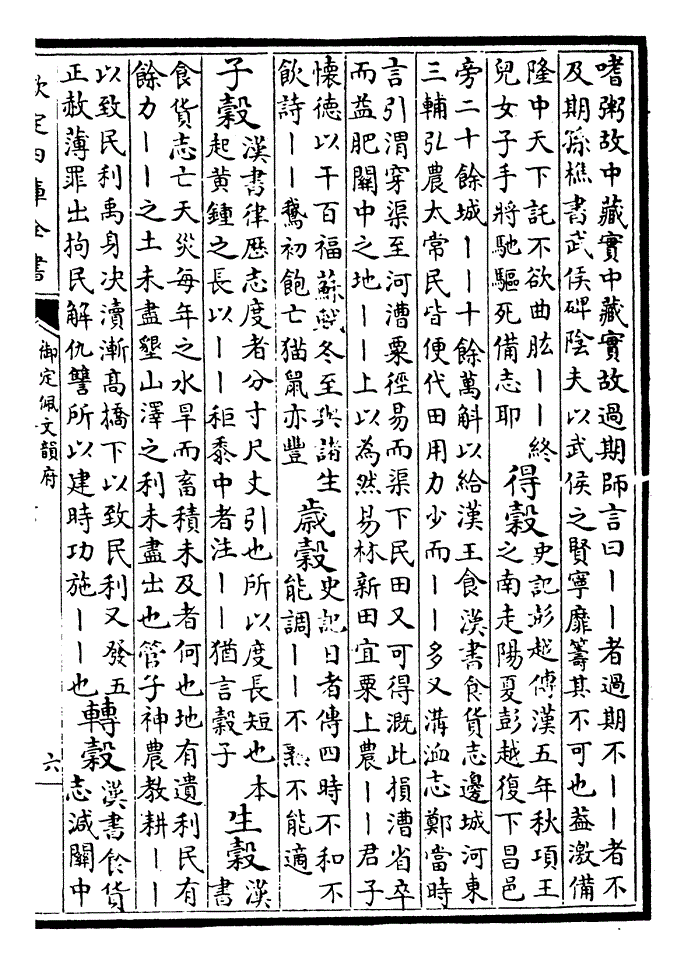 嗜粥故中藏實中藏實故過期師言曰丨丨者過期不丨丨者不
及期孫樵書武侯碑陰夫以武侯之賢寧靡籌其不可也葢激備
隆中天下託不欲曲肱丨丨終
兒女子手將馳驅死備志耶
得穀
史記彭越傳漢五年秋項王
之南走陽夏彭越復下昌邑
旁二十餘城丨丨十餘萬斛以給漢王食漢書食貨志邊城河東
三輔弘農太常民皆便代田用力少而丨丨多又溝洫志鄭當時
言引渭穿渠至河漕粟徑易而渠下民田又可得溉此損漕省卒
而益肥關中之地丨丨上以為然易林新田宜粟上農丨丨君子
懷德以干百福蘇軾冬至與諸生
飲詩丨丨鵝初飽亡猫鼠亦豐
歳穀
史記日者傳四時不和不
能調丨丨不熟不能適
子穀
漢書律歴志度者分寸尺丈引也所以度長短也本
起黄鍾之長以丨丨秬黍中者注丨丨猶言穀子
生穀
漢書
食貨志亡天災每年之水旱而畜積未及者何也地有遺利民有
餘力丨丨之土未盡墾山澤之利未盡出也管子神農教耕丨丨
以致民利禹身决瀆漸高橋下以致民利又發五
正赦薄罪出拘民解仇讐所以建時功施丨丨也
轉穀
漢書食貨
志減關中
欽定四庫全書
御定佩文韻府
六